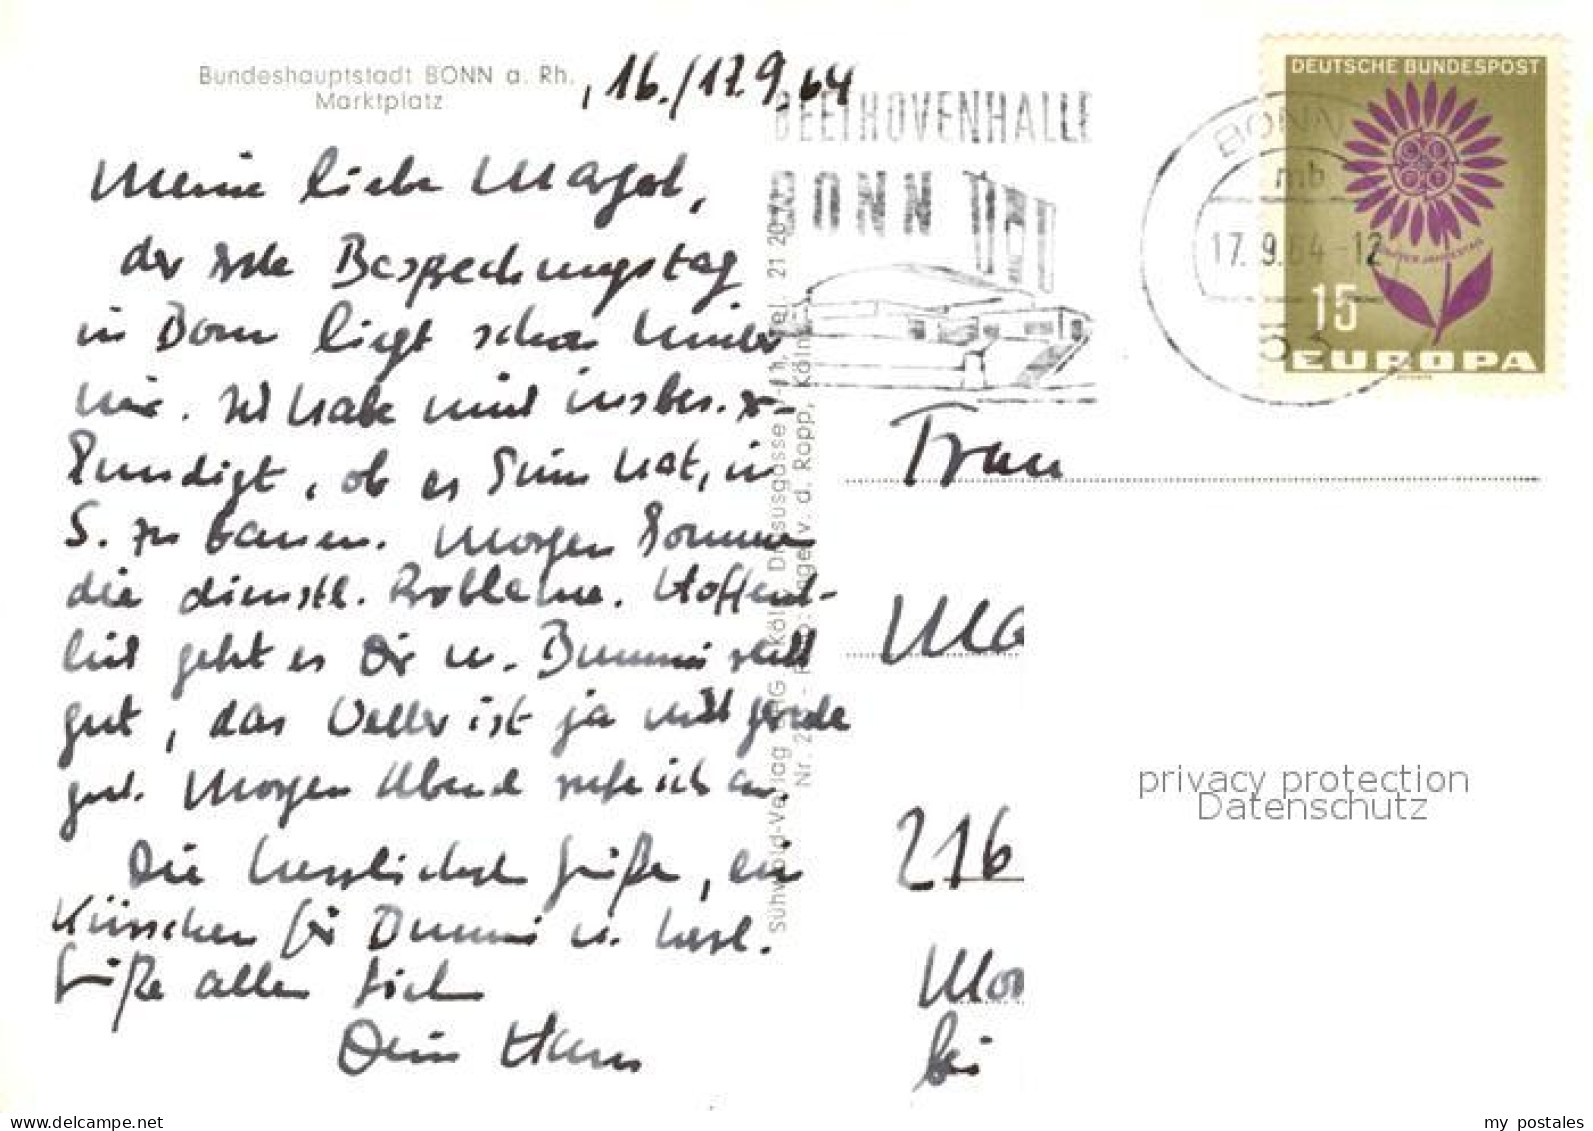 Bundeshauptstadt BONN a. Rh.
Marktplatz
, 16./17.9.64
BEETHOVENHALLE
BONN
DEUTSCHE BUNDESPOST
BONN
mb
17.9.64-12
53
15
EUROPA
Meine liebe Margot,
der erste Besprechungstag
in Bonn liegt schon hinter
mir. Ich habe mich insbes. er-
kundigt, ob es Sinn hat, in
S. zu bauen. Morgen kommen
die dienstl. Probleme. Hoffent-
lich geht es Dir u. Bummi recht
gut, das Wetter ist ja nicht gerade
gut. Morgen Abend rufe ich an.
Die herzlichsten Grüße, ein
Küsschen für Bummi u. herzl.
Grüße allen
Dein Hans
Frau
Ma
216
Mor
bei
Nr. 2
v. d. Ropp, Köln
privacy protection
Datenschutz
my postales